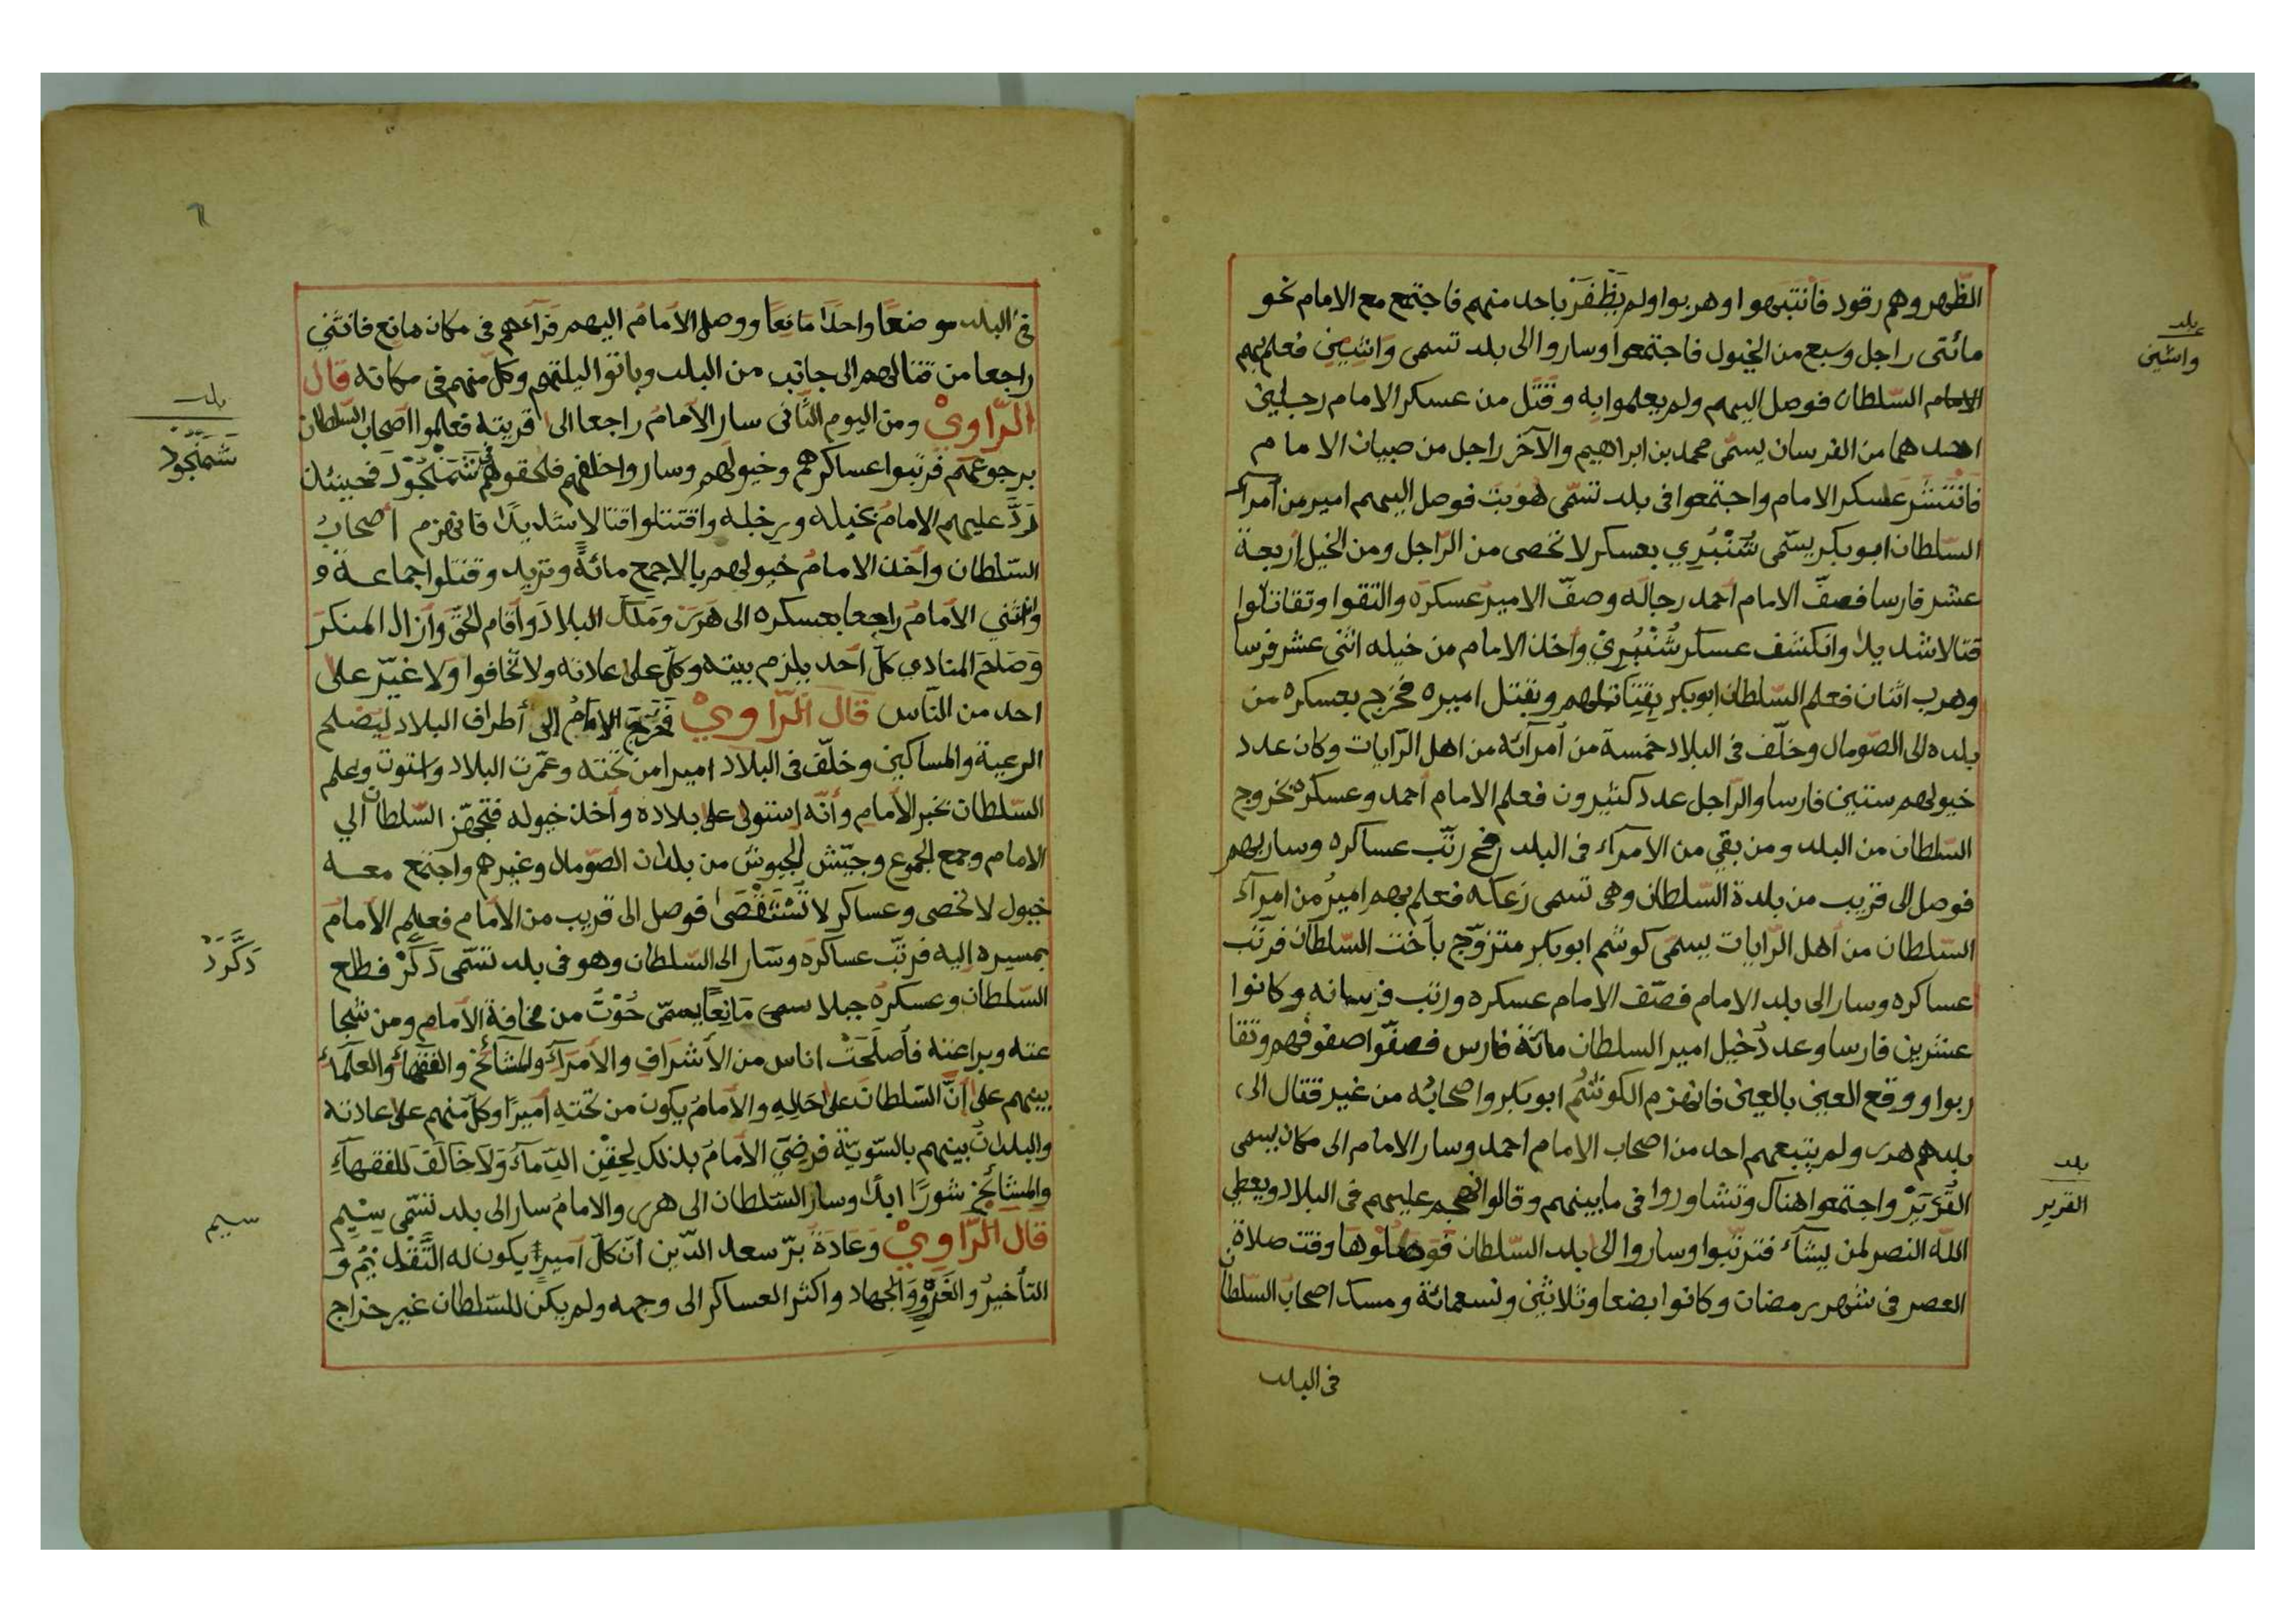 الظّهر وهم رقود فانتبهوا وهربوا ولم يظفر باحد منهم فاجتمع مع الامام نحو
مائتى راجل وسبع من الخيول فاجتمعوا وساروا الى بلد تسمى واثنين فعلم بهم
السّلطان فوصل اليهم ولم يعلموا به وقتل من عسكر الامام رجلين
احدهما من الفرسان يسمّى محمد بن ابراهيم والآخر راجل من صبيان الامام
فانتشر عسكر الامام واجتمعوا فى بلد تسمّى هوبت فوصل اليهم امير من أمرآء
السّلطان ابوبكر يسمّى شُنْبُرِي بعسكر لا تحصى من الرّاجل ومن الخيل اربعة
عشر فارسا فصفّ الامام أحمد رجاله وصفّ الامير عسكره والتقوا وتقاتلوا
قتالا شديدا وانكشف عسكر شُنْبُرِيْ وأخذ الامام من خيله اثنى عشر فرسا
وهرب اثنان فعلم السّلطان ابوبكر بقتالهم وبقتل اميره فخرج بعسكره من
بلده الى الصّومال وخلّف فى البلاد خمسة من أمرآئه من اهل الرّايات وكان عدد
خيولهم ستين فارسا والرّاجل عدد كثيرون فعلم الامام أحمد وعسكره بخروج
السّلطان من البلد ومن بقي من الامرآء فى البلد رتّب عساكره وسار بهم
فوصل الى قريب من بلدة السّلطان وهى تسمى زعكه فعلم بهم اميرُ من امرآء
السّلطان من أهل الرّايات يسمّى كوشم ابوبكر متزوّج بأخت السلطان فرتّب
عساكره وسار الى بلد الامام فصّف الامام عسكره ورتب فرسانه وكانوا
عشرين فارسا وعدد خيل امير السلطان مائة فارس فصفّوا صفوفهم وتقا
ربوا ووقع العين بالعين فانهزم الكوشم ابوبكر واصحابه من غير قتال الى
بلدهم هرر ولم يتبعهم احد من اصحاب الامام احمد وسار الامام الى مكان يسمى
القُرَيْر واجتمعوا هناك وتشاوروا فى مابينهم وقالوا نهجم عليهم فى البلاد ويعطى
اللّه النصر لمن يشآء فترتّبوا وساروا الى بلد السّلطان فوصلوها وقت صلاة
العصر فى شهر رمضان وكانوا بضعا وثلاثين وتسعمائة ومسك اصحاب السّلطان
فى البلد
بلد
واثنين
بلد
القرير
٦
فى البلد موضعًا واحدًا مانعًا ووصل الأمامُ اليهم فرآءهم فى مكان مانع فانثني
راجعا من قتالهم الى جانب من البلد وباتوا ليلتهم وكلّ منهم فى مكانه قال
الرّاويْ ومن اليوم الثّانى سار الأمامُ راجعا الى قريته فعلموا اصحاب السّلطان
برجوعهم فرتبوا عساكرهم وخيولهم وساروا خلفهم فلحقوهم فى شَمَنْجُوْد فحينئذ
رَدَّ عليهم الامامُ بخيله ورجله واقتتلوا قتالا شديدًا فانهزم أصحابُ
السّلطان وأخذ الامامُ خيولهم بالاجمع مائةً وتزيد وقتلوا جماعة و
وانثني الأمامُ راجعا بعسكره الى هرر وملك البلاد وأقام الحقّ وأزال المنكر
وصاح المنادي كلّ أحد يلزم بيته وكلّ على عادته ولا تخافوا ولا غيّر على
احد من النّاس قال الرّاويْ فخرج الامامُ الى أطراف البلاد ليصلح
الرعية والمساكين وخلّف فى البلاد اميرا من تحته وعمّرت البلاد واستوت وعلم
السّلطان بخبر الأمام وأنّه استولى على بلاده وأخذ خيوله فتجهّز السّلطان الي
الامام وجمع الجموع وجيّش الجيوش من بلدان الصّومال وغيرهم واجتمع معه
خيول لا تحصى وعساكر لا تُسْتَقْصَى فوصل الى قريب من الأمام فعلم الأمام
بمسيره إليه فرتّب عساكره وسار الى السّلطان وهو فى بلد تسمّى دَكَّرْ فطلع
السّلطان وعسكرُه جبلا سمى مَانِعًا يسمّى حُوْتُ من مخافة الأمام ومن شجا
عته وبراعته فأصلَحَتْ اناس من الأشراف والأمرآء والمشآئخ والفقهآء والعلمآء
بينهم على أنّ السّلطان على حَالِه والأمامُ يكون من تحته أميرًا وكلّ منهم على عادته
والبلدانُ بينهم بالسّويّة فرضي الأمامُ بذلك لحقن الدّمآء ولا خالف للفقهآء
والمشآئخ شورًا ابدًا وسار السّلطان الى هرر والامامُ سار الى بلد تسّمى سِيْم
قال الرّاويْ وعادة برّ سعد الدّين انّ كلّ أمير يكون له التّقديمُ و
التأخيرُ والغَزْوُ والجهاد واكثر العساكر الى وجهه ولم يكن للسّلطان غير خراج
بلد
شَمَنْجُود
دَكَّرَدْ
سيم